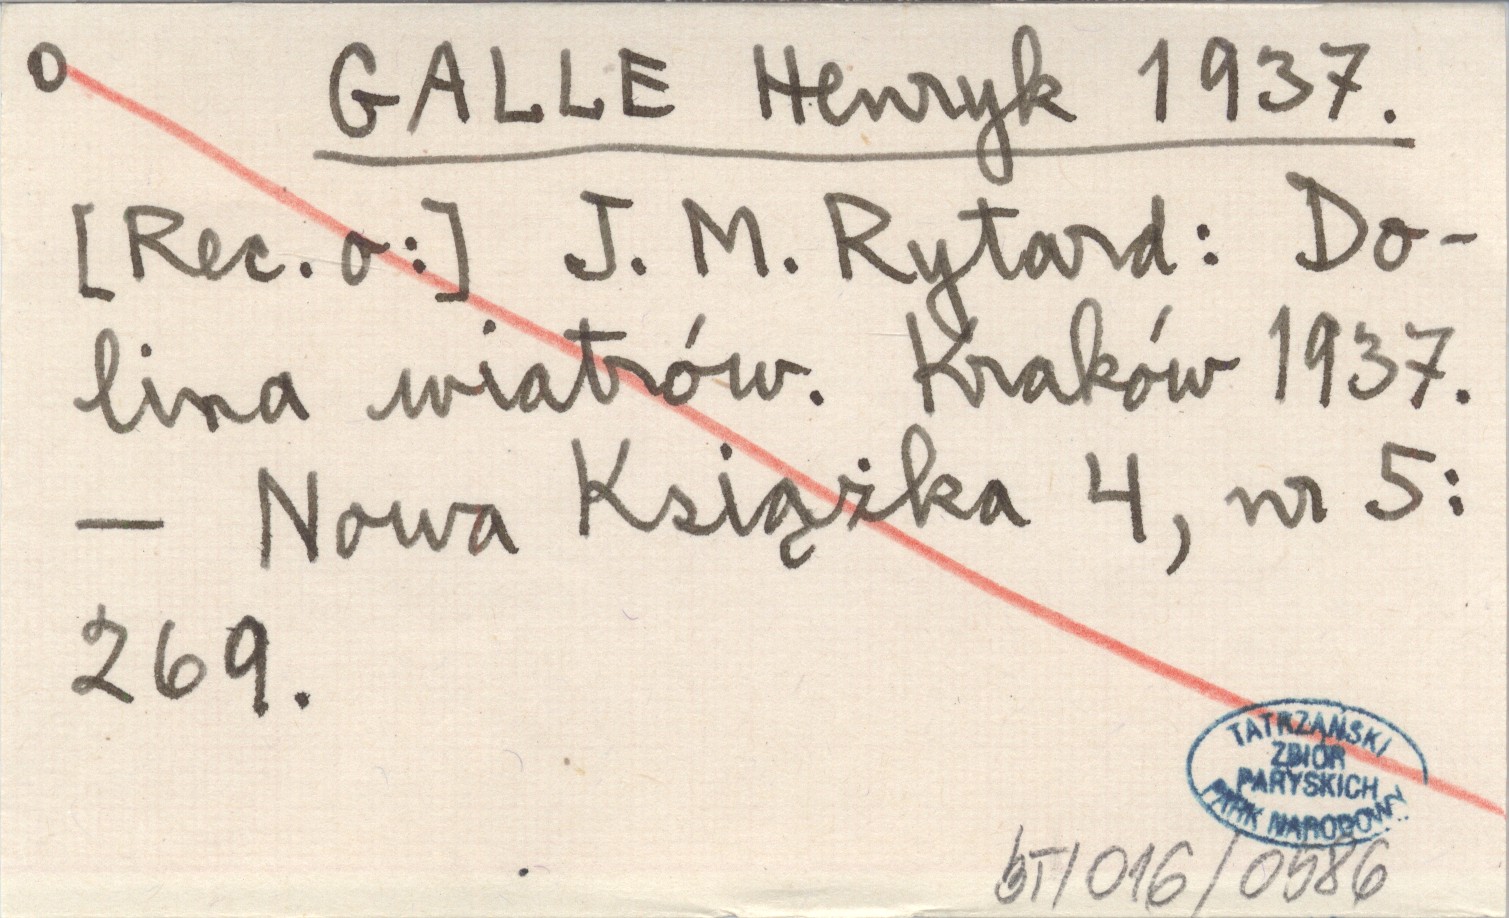 o GALLE Henryk 1937.
[Rec. o:] J. M. Rytard: Do-
lina wiatrów. Kraków 1937.
— Nowa Książka 4, nr 5:
269.
TATRZAŃSKI
ZBIÓR
PARYSKICH
PARK NARODOWY
bT/016/0586